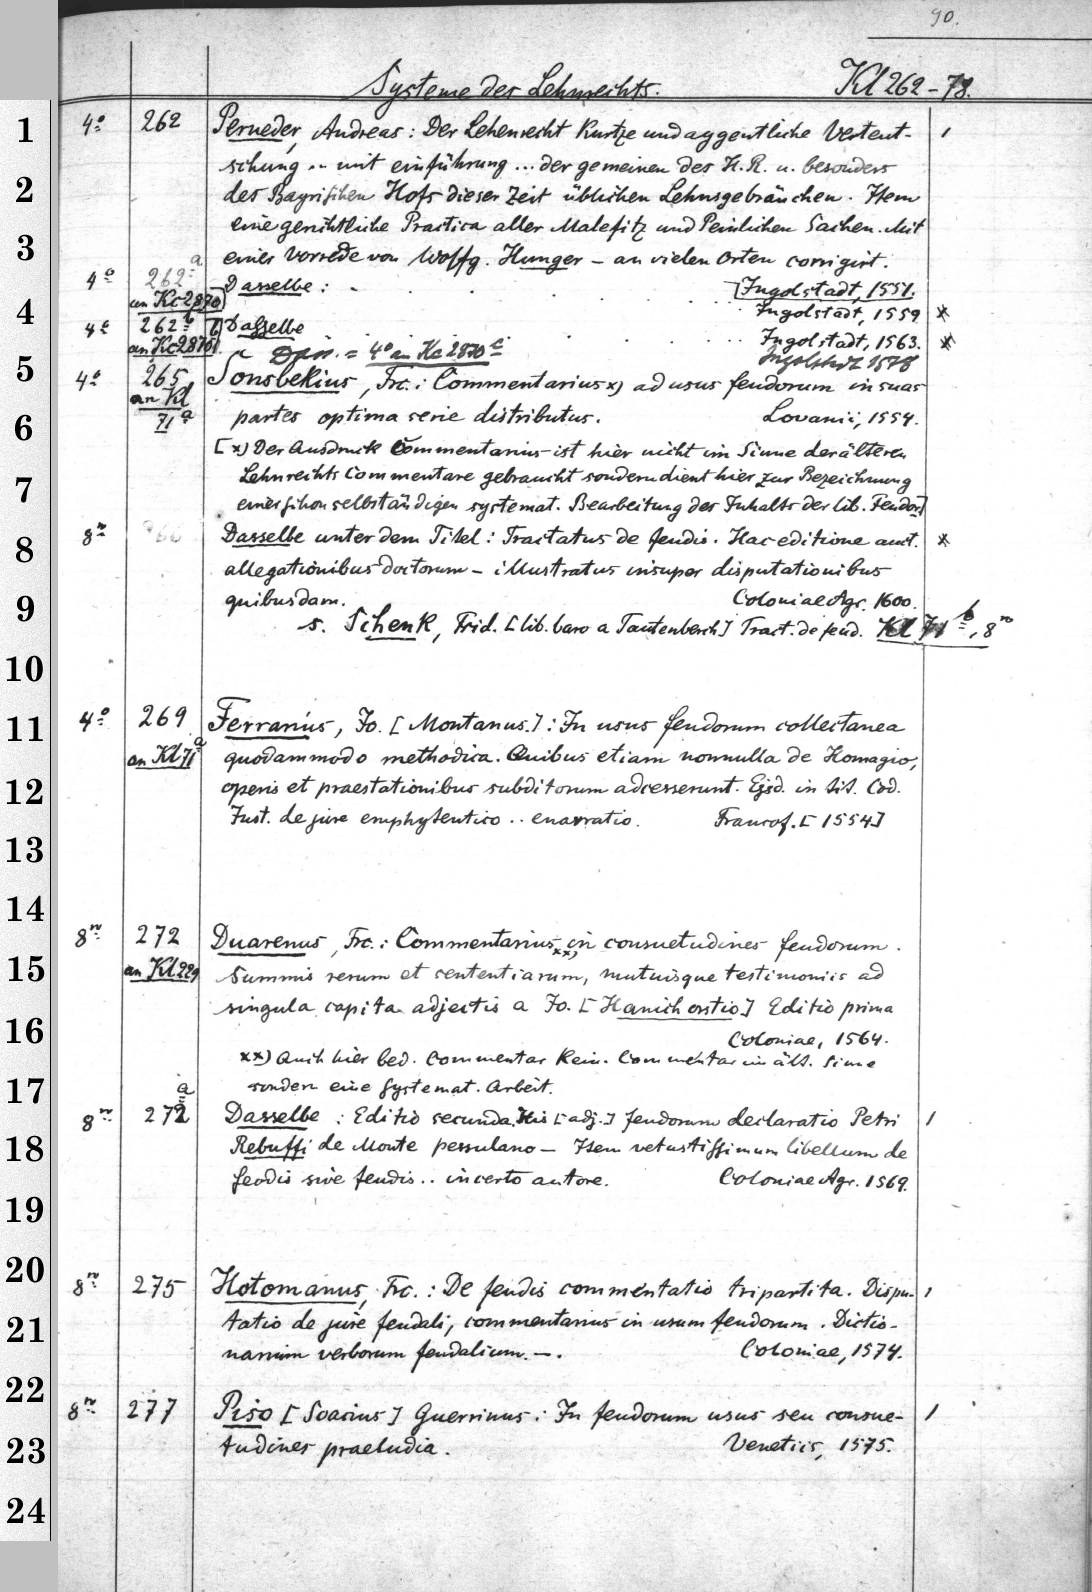 90.
Systeme des Lehnrechts. Kl 262-78.
1 4° 262 Perneder, Andreas: Der Lehenrecht Kurtze und aygentliche Verteut- 1
schung .. mit einführung ... der gemeinen des H. R. u. besonders
2 des Bayrischen Hofs dieser Zeit üblichen Lehnsgebräuchen. Item
eine gerichtliche Practica aller Malefitz und Peinlichen Sachen. Mit
3 einer Vorrede von Wolffg. Hunger - an vielen Orten corrigirt.
4° 262a Dasselbe: . . . [Ingolstadt, 1551.
an Kc 2870]
4 . . Ingolstadt, 1559 x
4° 262b [Dasselbe . . . . . . Ingolstadt, 1563. x
an Kc 2870]
Dass. = 4° an Kc 2870c Ingolstadt 1578
5 4° 265 Sonsbekius, Frc.: Commentarius x) ad usus feudorum in suas
an Kl
6 71a partes optima serie distributus. Lovanii, 1554.
[x) Der Ausdruck Commentarius ist hier nicht im Sinne der älteren
7 Lehnrechts Commentare gebraucht sondern dient hier zur Bezeichnung
einer schon selbständigen systemat. Bearbeitung des Inhalts der lib. Feudor.]
8 8° 266 Dasselbe unter dem Titel: Tractatus de feudis. Hac editione auct. x
allegationibus doctorum - illustratus insuper disputationibus
9 quibusdam. Coloniae Agr. 1600.
s. Schenk, Frid. [lib. baro a Tautenberch] Tract. de feud. Kl 71b, 8°
10
11 4° 269 Ferrarius, Jo. [Montanus.]: In usus feudorum collectanea
an Kl 71a quodammodo methodica. Quibus etiam nonnulla de Homagio,
12 operis et praestationibus subditorum adcesserunt. Ejsd. in tit. Cod.
Just. de jure emphyteutico .. enarratio. Francof. [1554]
13
14
8° 272 Duarenus, Frc.: Commentarius xx) in consuetudines feudorum.
15 an Kl 229 Summis rerum et sententiarum, mutuisque testimoniis ad
singula capita adjectis a Jo. [Hanichorstio] Editio prima
16 Coloniae, 1564.
xx) Auch hier bed. Commentar kein. Commentar im ält. Sinne
17 sondern eine Systemat. Arbeit.
8° 272a Dasselbe: Editio secunda. His [adj.] feudorum declaratio Petri 1
18 Rebuffi de Monte pessulano - Item vetustissimum libellum de
feodis sive feudis .. incerto autore. Coloniae Agr. 1569.
19
20 8° 275 Hotomanus, Frc.: De feudis commentatio tripartita. Dispu- 1
21 tatio de jure feudali, commentarius in usum feudorum. Dictio-
narium verborum feudalium. -. Coloniae, 1574.
22
8° 277 Piso [Soacius] Guerrinus: In feudorum usus seu consue- 1
23 tudines praeludia. Venetiis, 1575.
24